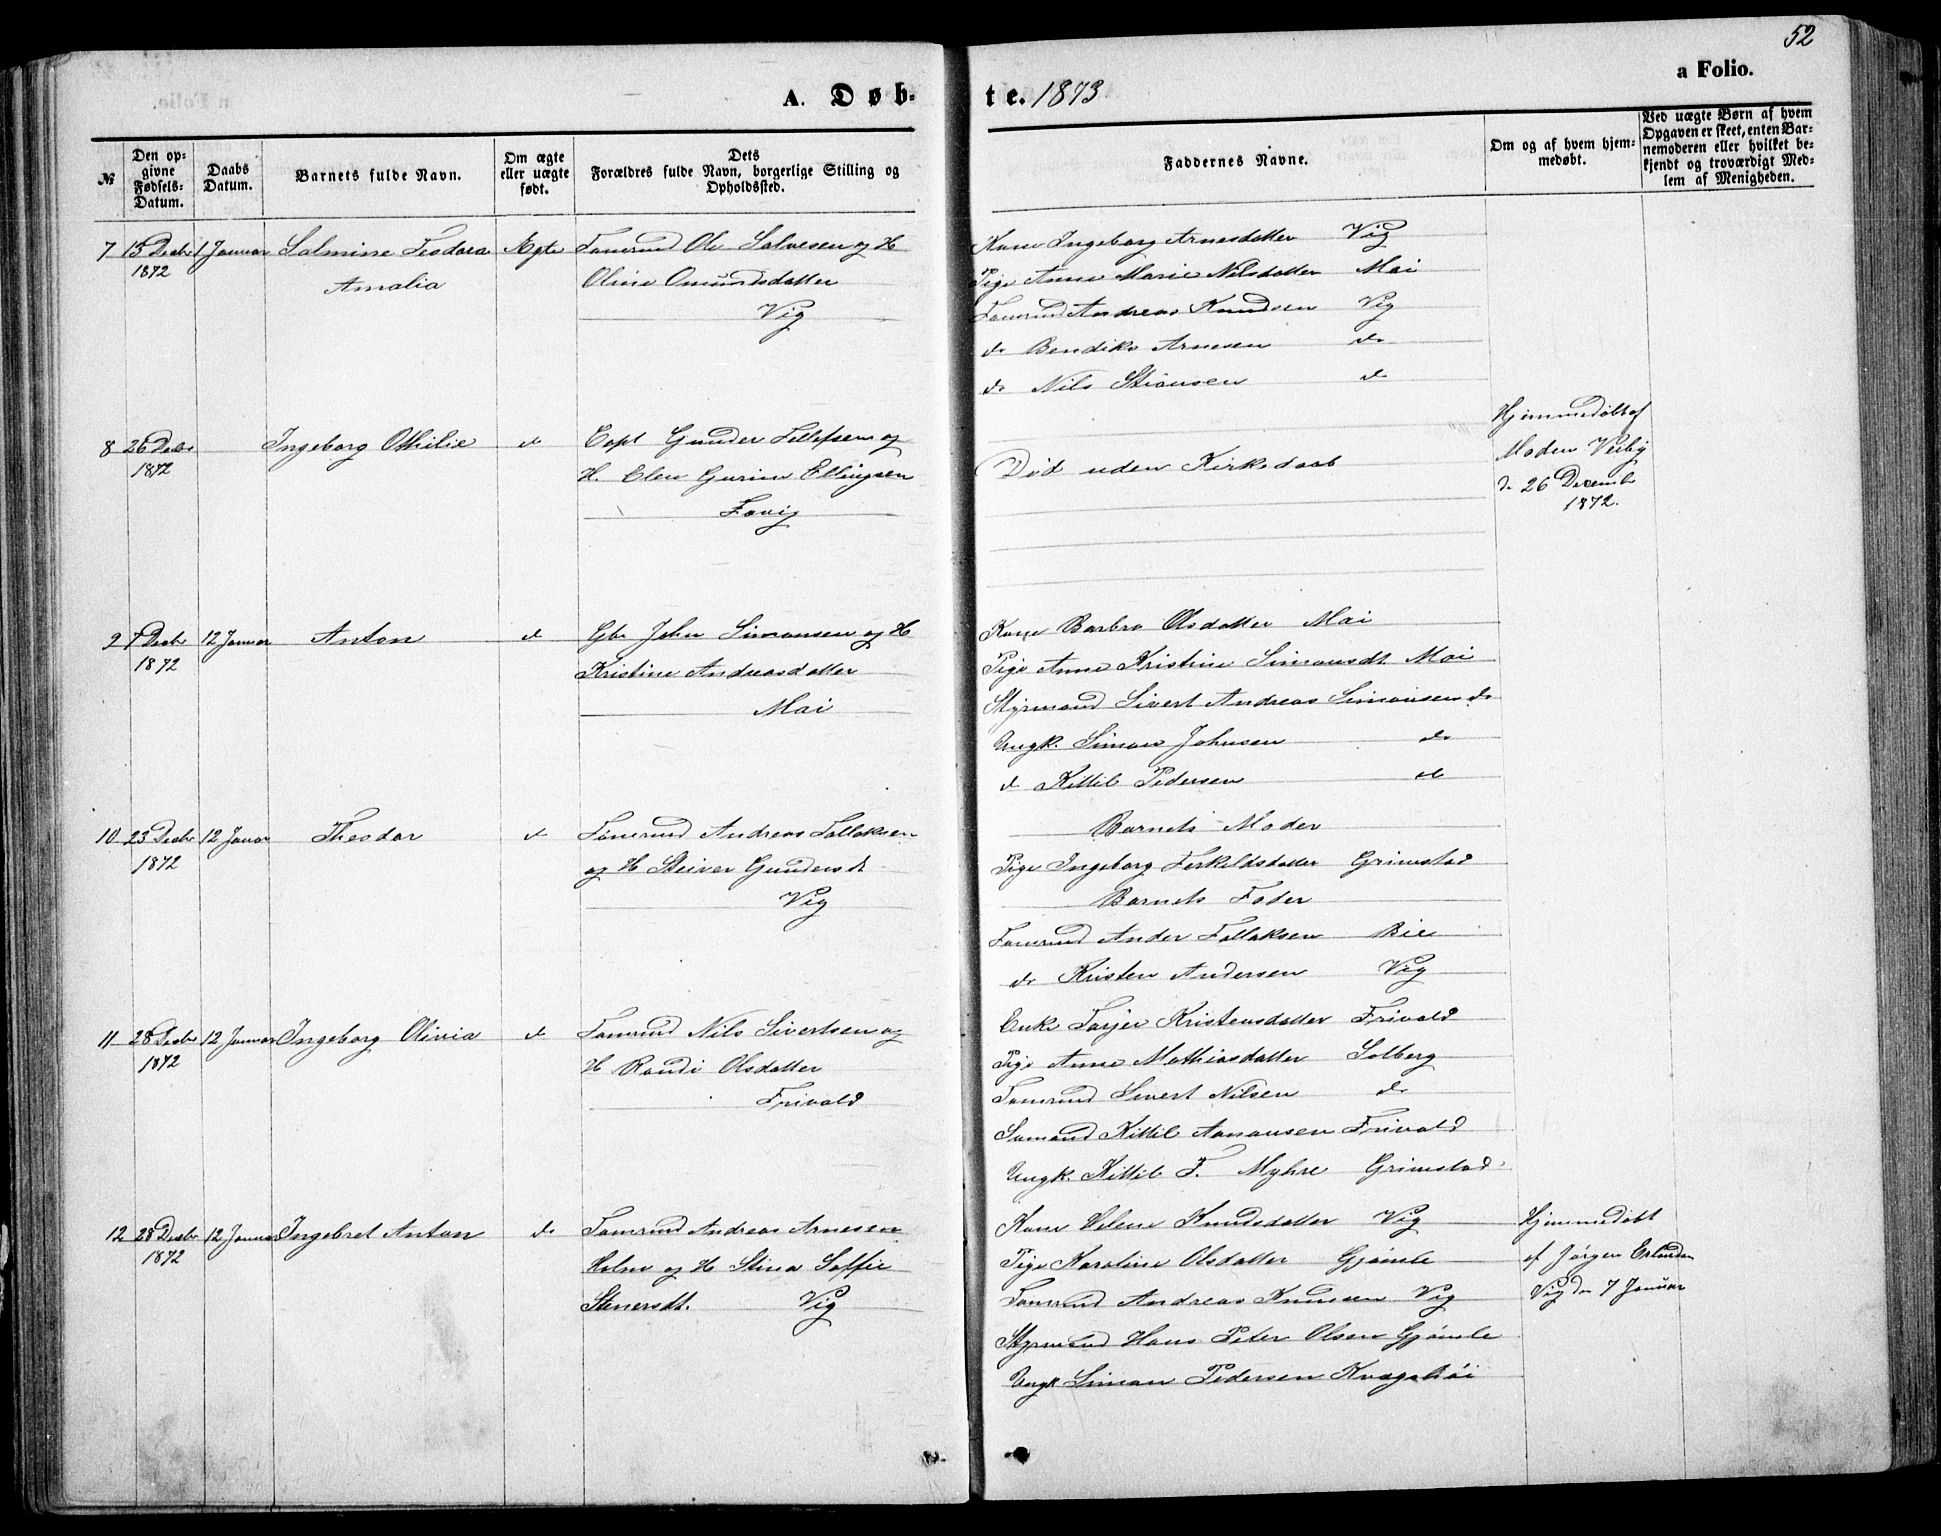 52
a Folio.
A. Døb-
te. 1873
№
Den op-
givne
Fødsels-
Datum.
Daabs
Datum.
Barnets fulde Navn.
Om ægte
eller uægte
født.
Dets
Forældres fulde Navn, borgerlige Stilling og
Opholdssted.
Faddernes Navne.
Om og af hvem hjem-
medøbt.
Ved uægte Børn af hvem
Opgaven er skeet, enten Bar-
nemoderen eller hvilket be-
kjendt og troværdigt Med-
lem af Menigheden.
7 15 Decbr 1 Januar Salmine Teodora Ægte Tømrmd Ole Salvesen og H
1872 Amalia Oline Omundsdatter
Vig
Kone Ingeborg Arnesdatter Vig
Pige Anne Marie Nilsdatter Mai
Tømrmd Andreas Knudsen Vig
do Bendiks Arnesen do
do Nils Stiansen do
8 26 Decbr Ingeborg Othilie do Capt Gunder Tellefsen og
1872 H. Elen Gurine Ellingsen
Favig
Død uden Kirkedaab
Hjemmedøbt af
Moden Veiby
d. 26 Decembr
1872.
9 7 Decbr 12 Januar Anton do Gbr John Simonsen og H
1872 Kristine Andreasdatter
Mai
Kone Barbro Olsdatter Mai
Pige Anne Kristine Simonsdt Mai
Styrmand Sivert Andreas Simonsen do
Ungk. Simon Johnsen do
do Kittil Pedersen do
10 23 Decbr 12 Januar Theodor do Tømrmd Andreas Tallaksen
1872 og H Gundersdt
Vig
Barnets Moder
Pige Ingeborg Terkildsdatter Grimstad
Barnets Fader
Tømrmd Ander Tallaksen Bie
do Kristen Andersen Vig
11 28 Decbr 12 Januar Ingeborg Olivia do Tømrmd Nils Sivertsen og
1872 H Randi Olsdatter
Frivold
Enke Tarjer Kristensdatter Frivold
Pige Anne Mathiasdatter Solberg
Tømrmd Sivert Nilsen do
Sømand Kittil Aanonsen Frivold
Ungk. Kittil T. Myhre Grimstad
12 28 Decbr 12 Januar Ingebret Anton do Tømrmd Andreas Arnesen
1872 Holm og H Stina Soffie
Stenersdt. Vig
Kone Helene Knudsdatter Vig
Pige Karoline Olsdatter Gjømle
Tømrmd Andreas Knussen Vig
Styrmand Hans Peter Olsen Gjømle
Ungk Simon Pedersen
Hjemmedøbt
af Jørgen
Vig den 7 Januar